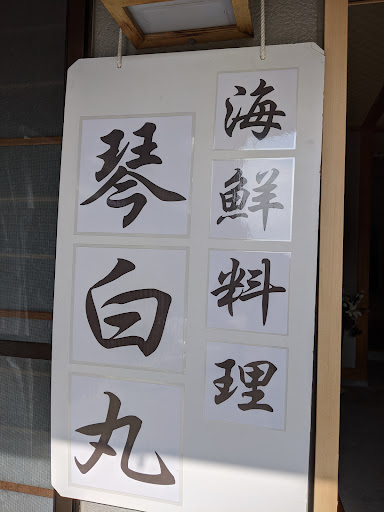 海鮮料理
琴白丸